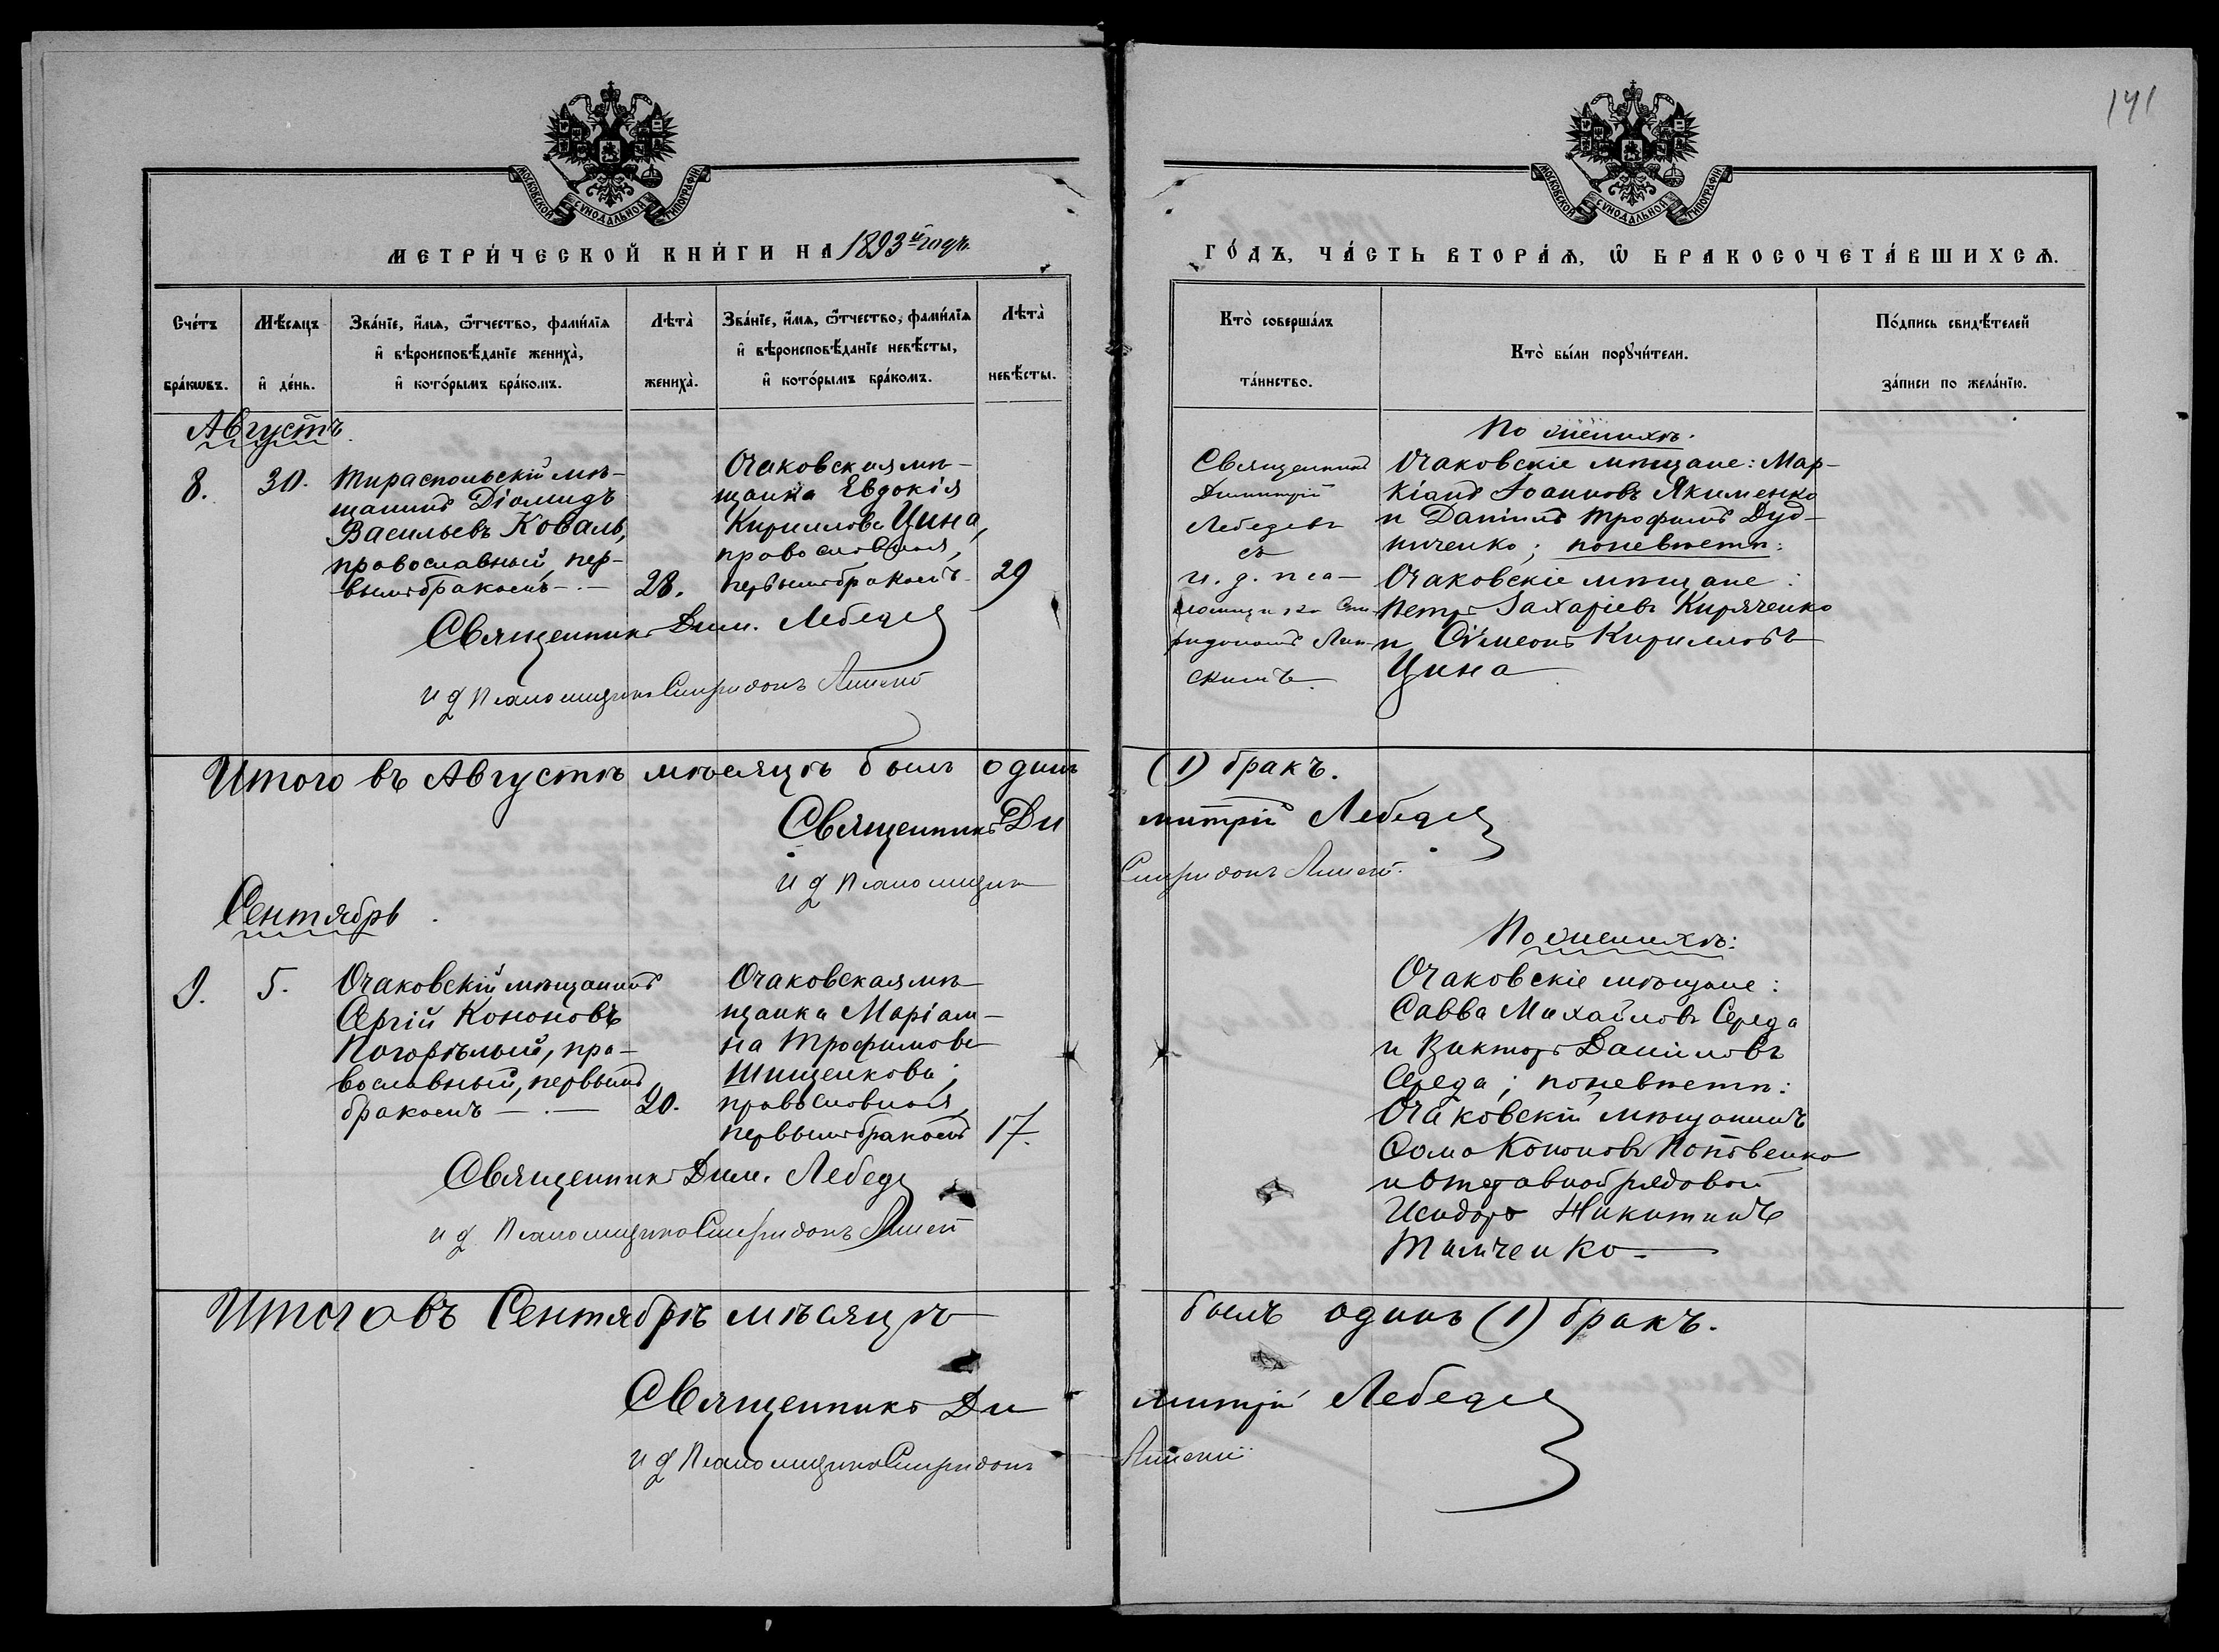 141
МОСКОВСКОЙ СѴНОДАЛЬНОЙ ТИПОГРАФІИ
МОСКОВСКОЙ СѴНОДАЛЬНОЙ ТИПОГРАФІИ
МЕТРИ́ЧЕСКОЙ КНИ́ГИ НА 1893й годъ.
ГО́ДЪ, ЧА́СТЬ ВТОРА́Ѧ, Ѽ БРАКОСОЧЕТА́ВШИХСѦ.
Сче́тъ бра́кωвъ.
Мѣ́сяцъ и҆ де́нь.
Зва́нїе, и҆́мѧ, ѻ҆́тчество, фами́лїѧ
и҆ вѣроисповѣ́данїе жениха̀,
и҆ кото́рымъ бра́комъ.
Лѣта̀ жениха̀.
Зва́нїе, и҆́мѧ, ѻ҆́тчество, фами́лїѧ
и҆ вѣроисповѣ́данїе невѣ́сты,
и҆ кото́рымъ бра́комъ.
Лѣта̀ невѣ́сты.
Кто̀ соверша́лъ
та́инство.
Кто̀ бы́ли порꙋчи́тели.
По́дпись свидѣ́телей
за́писи по жела́нїю.
Августъ.
8. 30.
Тираспольскій мѣ-
щанинъ Діомидъ
Васильевъ Коваль,
православный, пер-
вымъ бракомъ
28.
Очаковская мѣ-
щанка Евдокія
Кириллова Цина,
православная,
первымъ бракомъ
29
Священникъ Дим. Лебедев
и д Псаломщика Спиридонъ
Священникъ
Димитрій
Лебедевъ
съ
и. д. пса-
ломщика Спи-
ридономъ
скимъ.
По женихѣ.
Очаковскіе мѣщане: Мар-
кіанъ Іоанновъ Якименко
и Даніилъ Трофимъ Дуд-
ниченко; по невѣстѣ:
Очаковскіе мѣщане:
Петръ Захаріевъ Киряченко
и Сѵмеонъ Кирилловъ
Цина
Итого въ Августѣ мѣсяцѣ былъ одинъ (1) бракъ.
Священникъ Димитрій Лебедев
и д Псаломщик Спиридонъ
Сентябрь
9. 5.
Очаковскій мѣщанинъ
Сергій Кононовъ
Погорѣлый, пра-
вославный, первымъ
бракомъ
20.
Очаковская мѣ-
щанка Маріам-
на Трофимова
Шищенкова;
православная,
первымъ бракомъ
17.
Священникъ Дим. Лебедев
и д Псаломщика Спиридонъ
По женихѣ:
Очаковскіе мѣщане:
Савва Михайловъ Середа
и Викторъ Даніиловъ
Середа; по невѣстѣ:
Очаковскій мѣщанинъ
Ѳома Кононовъ Потовенко
и отставной рядовой
Исидоръ Никитинъ
Тимченко
Итого въ Сентябрѣ мѣсяцѣ былъ одинъ (1) бракъ.
Священникъ Димитрій Лебедев
и д Псаломщика Спиридонъ